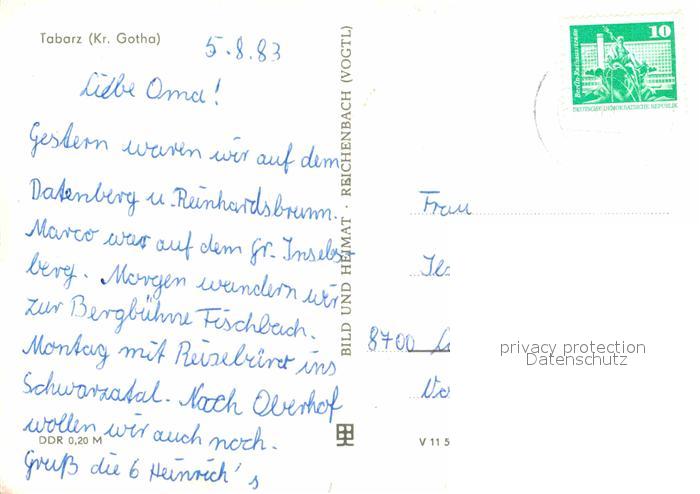 Tabarz (Kr. Gotha)
5.8.83
Liebe Oma!
Gestern waren wir auf dem
Datenberg u. Reinhardsbrunn.
Marco war auf dem gr. Insels-
berg. Morgen wandern wir
zur Bergbühne Fischbach.
Montag mit Reisebüro ins
Schwarzatal. Nach Oberhof
wollen wir auch noch.
Gruß die 6 Heinrich's
DDR 0,20 M
BILD UND HEIMAT · REICHENBACH (VOGTL)
V 11 5
10
Berlin-Rathausstraße
DEUTSCHE DEMOKRATISCHE REPUBLIK
Frau
8700
privacy protection
Datenschutz